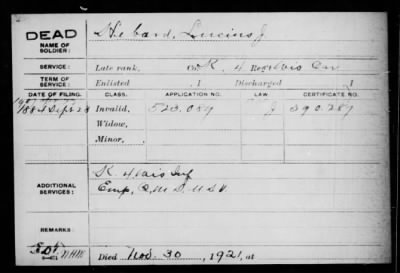 DEAD
NAME OF
SOLDIER:
Hebard, Lucius J
SERVICE:
Late rank, Co. K, 4 Reg't Wis Cav
TERM OF
SERVICE:
Enlisted , 1 Discharged , 1
DATE OF FILING.
CLASS.
APPLICATION NO.
LAW
CERTIFICATE NO.
1884 Sept 23
Invalid,
523.089
J
390.287
Widow,
Minor,
ADDITIONAL
SERVICES:
K. 4 Wis Inf
Emp, Q.M.D. U.S.V.
REMARKS
Died Nov. 30, 1921, at